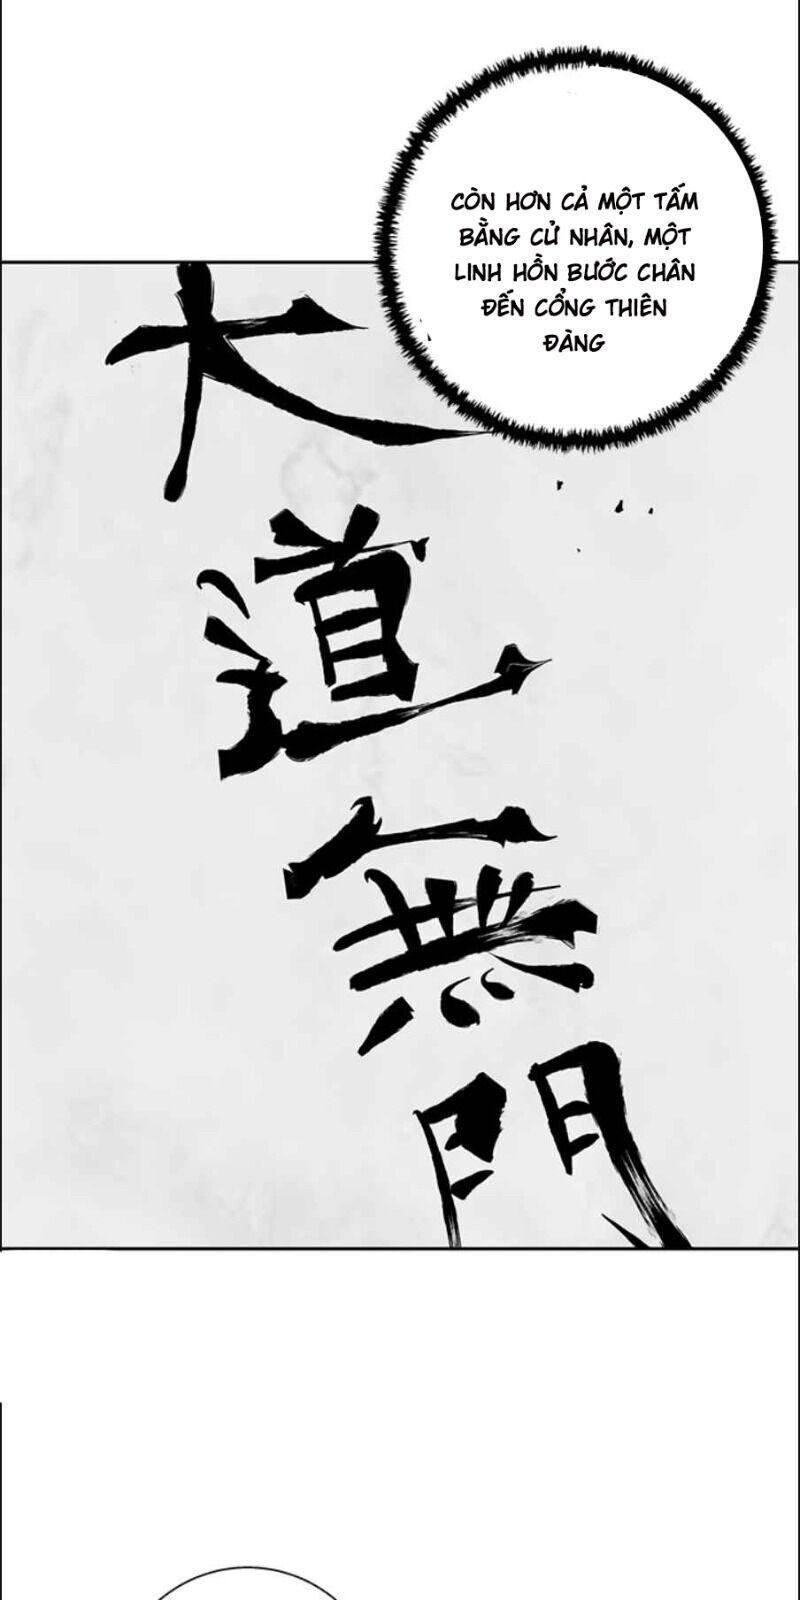 CÒN HƠN CẢ MỘT TẤM
BẰNG CỬ NHÂN, MỘT
LINH HỒN BƯỚC CHÂN
ĐẾN CỔNG THIÊN
ĐÀNG
大道無門